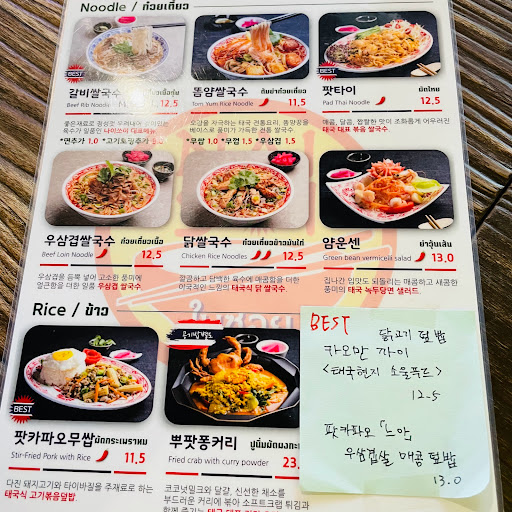 Noodle / ก๋วยเตี๋ยว
BEST
갈비쌀국수
Beef Rib Noodle
12,5
똠얌쌀국수 ต้มยำก๋วยเตี๋ยว
Tom Yum Rice Noodle 11,5
BEST
팟타이 ผัดไทย
Pad Thai Noodle 12,5
*면추가 1.0 *고기토핑추가 5.0
오감을 자극하는 태국 전통요리. 똠얌꿍을
베이스로 풍미가 가득한 전통 쌀국수
*우삼 1.0 *우껌 1.5 *우삼겹 1.5
매콤, 달콤, 짭짤한 맛이 조화롭게 어우러진
태국 대표 볶음 쌀국수.
우삼겹쌀국수 ก๋วยเตี๋ยวเนื้อ
Beef Loin Noodle 12,5
닭쌀국수 ก๋วยเตี๋ยวข้าวมันไก่
Chicken Rice Noodles 12,5
얌운센 ยำวุ้นเส้น
Green bean vermicelli salad 13,0
우삼겹을 듬뿍 넣어 고소한 풍미에
얼큰함을 더한 일품 우삼겹 쌀국수
깔끔하고 담백한 육수에 매콤함을 더한
이국적인 느낌의 태국식 닭 쌀국수.
집나간 입맛도 되돌리는 매콤하고 새콤한
풍미의 태국 녹두당면 샐러드.
Rice / ข้าว
BEST
팟카파오무쌉 ผัดกระเพราหมู
Stir-Fried Pork with Rice 11,5
다진 돼지고기와 타이바질을 주재료로 하는
태국식 고기볶음덮밥.
공기밥별도
뿌팟퐁커리 ปูนิ่มผัดผงกะ
Fried crab with curry powder 23,
코코넛밀크와 달걀, 신선한 채소를
부드러운 커리에 볶아 소프트크랩 튀김과
BEST 닭고기 덮밥
카오만 까이
<태국현지 소울푸드>
12.5
팟카파오 「느아」
우삼겹살 매콤 덮밥
13.0